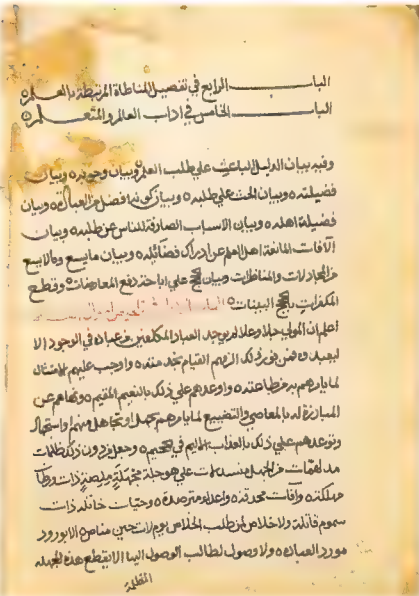 الباب الرابع في تفصيل المناطاة المرتبطة بالعلم
الباب الخامس في اداب العالم والمتعلم
وفيه بيان الدليل الباعث علي طلب العلم وبيان وجوبه وبيان
فضيلته وبيان الحث علي طلبه وبيان كونه افضل من العباده وبيان
فضيلة اهله وبيان الاسباب الصارفة للناس عن طلبه وبيان
الآفات المانعة اهل العلم عن ادراك فضائله وبيان ما يسع وما لا يسع
من المجادلات والمناظرات وبيان علي اباحة دفع المعارضات وقطع
المكفرات البينات الباب
اعلم ان المولي جل وعلا لم يوجد العباد المكلفين من عباده في الوجود الا
ليعبدوه فمن فور ذلك الزمهم القيام بحد منته واوجب عليهم الامتثال
لما يامرهم به من طاعته واوعدهم علي ذلك بالنعيم المقيم ونهاهم عن
المبارزة له بالمعاصي والتضييع لما يامرهم
وتوعدهم علي ذلك بالعذاب الاليم في جحيم وجعل من دون ذلك ظلمات
مدلهمات من الجهل علي هوجلة ذات
مهلكة وآفات محدقة واعداء مترصدة وحيات خاتله ذات
سموم قاتلة ولا خلاص لمن طلب الخلاص يوم لات حين مناص الا بورود
مورد العباده ولا وصول لطالب الوصول اليها الا بقطع هذه
المظلمة